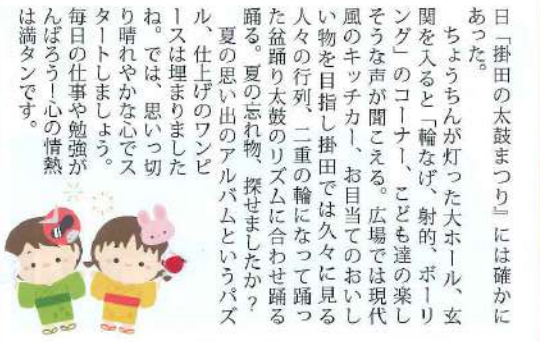 日「掛田の太鼓まつり』には確かに
あった。
　ちょうちんが灯った大ホール、玄
関を入ると「輪なげ、射的、ボーリ
ング」のコーナー、こども達の楽し
そうな声が聞こえる。広場では現代
風のキッチカー、お目当てのおいし
い物を目指し掛田では久々に見る
人々の行列、二重の輪になって踊っ
た盆踊り太鼓のリズムに合わせ踊る
踊る。夏の忘れ物、探せましたか？
　夏の思い出のアルバムというパズ
ル、仕上げのワンピ
ースは埋まりました
ね。では、思いっ切
り晴れやかな心でス
タートしましょう。
毎日の仕事や勉強が
んばろう！心の情熱
は満タンです。